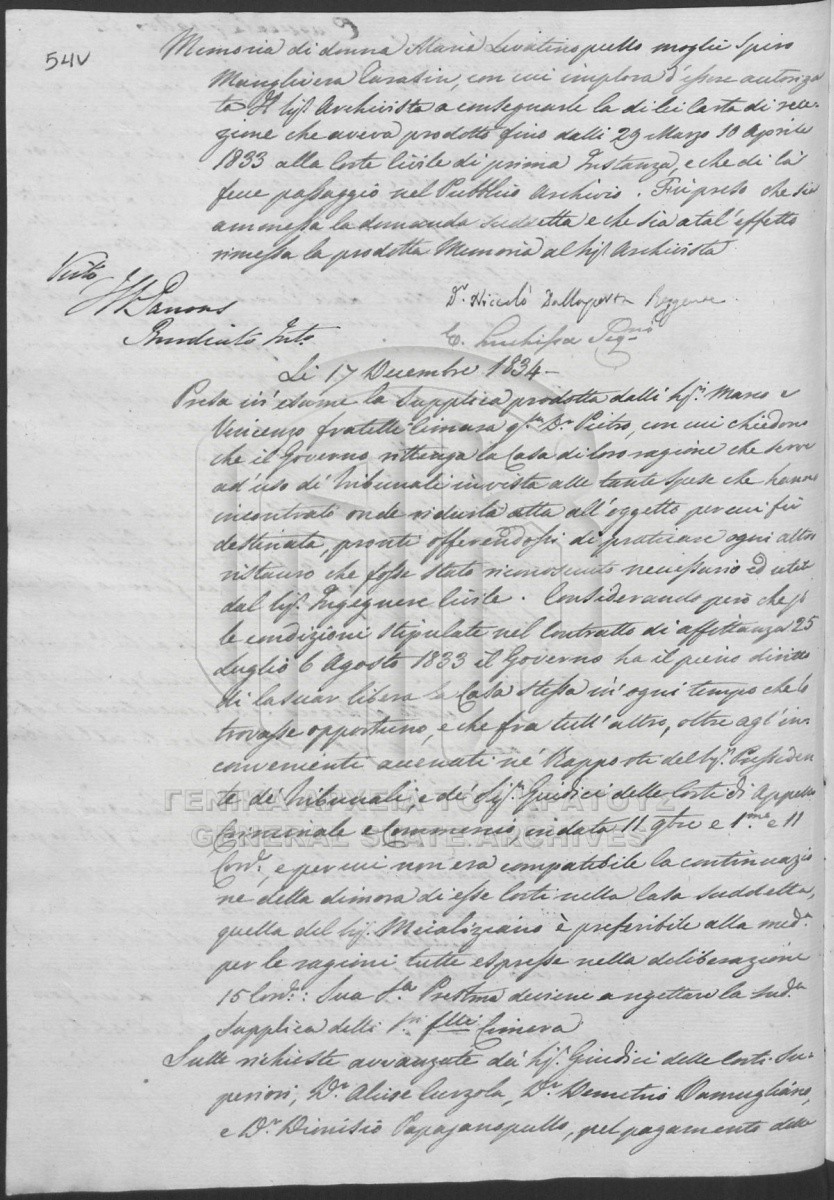 54V
Memoria di donna Maria Livatinopullo moglie Spiro
Manglivera Tarasin, con cui implora d'essere autorizza
ta il Sigr Archivista a consegnarle la di lei Carta di rela=
zione che aveva prodotto fino dalli 29 Marzo 10 Aprile
1833 alla Corte Civile di prima Instanza, e che di là
fece passaggio nel Pubblico Archivio. Fù preso che sia
ammessa la domanda suddetta e che sia a tal' effetto
rimessa la prodotta Memoria al Sigr Archivista
Visto
Parsons
Residente Into
Dr Niccolò Dallaporta Reggente
E. Segrio
Li 17 Decembre 1834 –
Presa in' esame la Supplica prodotta dalli Sigri Marco e
Vincenzo fratelli Cimara qm Dr Pietro, con cui chiedono
che il Governo rittenga la Casa di loro ragione che serve
ad' uso di Tribunali in vista alle tante spese che hanno
incontrato onde ridurla atta all' oggetto per cui fù
destinata, pronti offerendosi di praticare ogni altro
ristauro che fosse stato riconosciuto necessario ed utile
dal Sigr Ingegnere Civile. Considerando però che pr
le condizioni stipulate nel Contratto di affittanza 25
Luglio 6 Agosto 1833 il Governo ha il pieno diritto
di lasciar libera la Casa stessa in' ogni tempo che lo
trovasse opportuno, e che fra tutt' altro, oltre agl' in=
convenienti accenati ne' Rapporti del Sigr Presiden
te de' Tribunali, e de' Sigri Giudici delle Corti di Appello
Criminale e Commercio in data 11 9bre e 1mo e 11
Corre, e per cui non era compatibile la continuazio
ne della dimora di esse Corti nella Casa suddetta,
quella del Sigr Micaliziano è preferibile alla meda
per le ragioni tutte espresse nella deliberazione
15 Corre: Sua Sa Prestma deviene a rigettare la sudа
supplica delli Sri flli Cimera
Sulle richieste avvanzate da' Sigri Giudici delle Corti Su=
periori, Dr Alvise Curzola, Dr Demetrio Damugliano,
e Dr Dionisio Papajanopullo, pel pagamento delle
ΓΕΝΙΚΑ ΑΡΧΕΙΑ ΤΟΥ ΚΡΑΤΟΥΣ
GENERAL STATE ARCHIVES